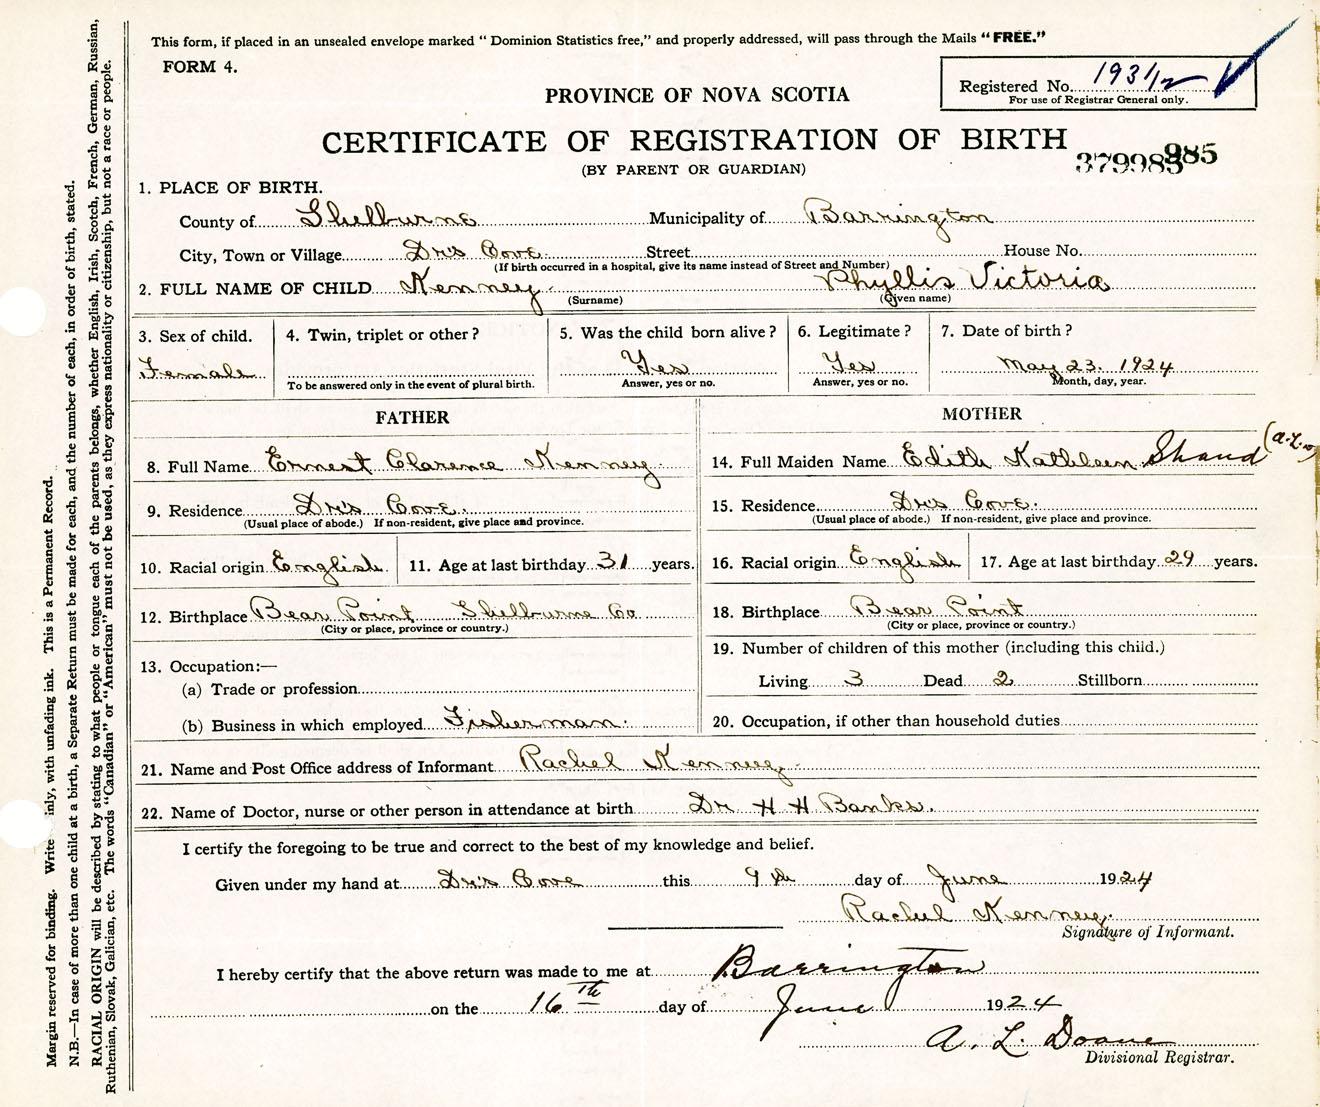 This form, if placed in an unsealed envelope marked "Dominion Statistics free," and properly addressed, will pass through the Mails "FREE."
FORM 4.
Registered No. 1931/2
For use of Registrar General only.
PROVINCE OF NOVA SCOTIA
CERTIFICATE OF REGISTRATION OF BIRTH
(BY PARENT OR GUARDIAN)
985
1. PLACE OF BIRTH.
County of Shelburne Municipality of Barrington
City, Town or Village Drs Cove Street House No.
(If birth occurred in a hospital, give its name instead of Street and Number)
2. FULL NAME OF CHILD Kenney Phyllis Victoria
(Surname) (Given name)
3. Sex of child. 4. Twin, triplet or other? 5. Was the child born alive? 6. Legitimate? 7. Date of birth?
Female Yes Yes May 23. 1924
To be answered only in the event of plural birth. Answer, yes or no. Answer, yes or no. Month, day, year.
FATHER MOTHER
8. Full Name Ernest Clarence Kenney 14. Full Maiden Name Edith Kathleen Shand
9. Residence Drs Cove. 15. Residence Drs Cove.
(Usual place of abode.) If non-resident, give place and province. (Usual place of abode.) If non-resident, give place and province.
10. Racial origin English 11. Age at last birthday 31 years. 16. Racial origin English 17. Age at last birthday 29 years.
12. Birthplace Bear Point Shelburne Co. 18. Birthplace Bear Point
(City or place, province or country.) (City or place, province or country.)
13. Occupation:—
(a) Trade or profession
(b) Business in which employed Fisherman.
19. Number of children of this mother (including this child.)
Living 3 Dead 2 Stillborn
20. Occupation, if other than household duties
21. Name and Post Office address of Informant Rachel Kenney
22. Name of Doctor, nurse or other person in attendance at birth Dr H H Banks.
I certify the foregoing to be true and correct to the best of my knowledge and belief.
Given under my hand at Drs Cove this 9th day of June 1924
Rachel Kenney.
Signature of Informant.
I hereby certify that the above return was made to me at Barrington
on the 16th day of June 1924
A. L. Doane
Divisional Registrar.
Margin reserved for binding. Write inly, with unfading ink. This is a Permanent Record.
N.B.—In case of more than one child at a birth, a Separate Return must be made for each, and the number of each, in order of birth, stated.
RACIAL ORIGIN will be described by stating to what people or tongue each of the parents belongs, whether English, Irish, Scotch, French, German, Russian,
Ruthenian, Slovak, Galician, etc. The words "Canadian" or "American" must not be used, as they express nationality or citizenship, but not a race or people.